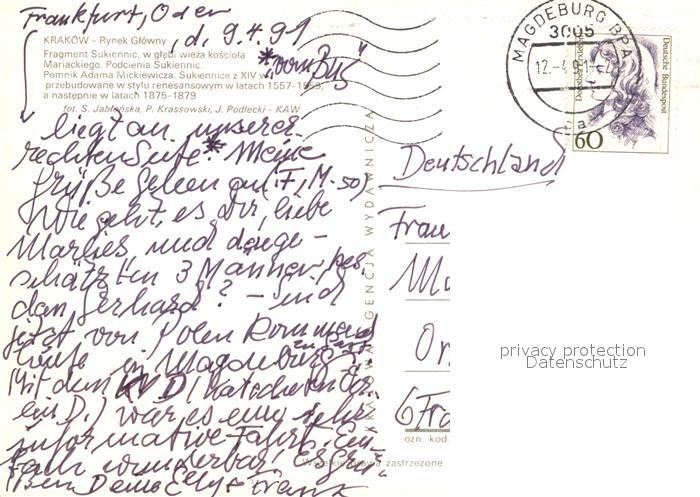 Frankfurt, Oder
d. 9.4.91
KRAKÓW – Rynek Główny
*"vom Bus"
Fragment Sukiennic, w głębi wieża kościoła
Mariackiego. Podcienia Sukiennic.
Pomnik Adama Mickiewicza. Sukiennice z XIV w.
przebudowane w stylu renesansowym w latach 1557-1559,
a następnie w latach 1875-1879
fot. S. Jabłońska, P. Krassowski, J. Podlecki - KAW
liegt an unserer
rechten Seite* Meine
Grüße gehen an (F, M-50)
Wie geht es dir, liebe
Marlies und den ge-
schätzten 3 Männern, bes.
dem Gerhard? – Sind
jetzt von Polen kommend
heute in Magdeburg zu Gast
Mit dem KVD (Katecheten Ver-
ein D.) war es eine sehr
informative Fahrt. Ein-
fach wunderbar! Es grü-
ßen
Frank
MAGDEBURG BPA
3005
12.-4.91-
a
Deutsche Bundespost
60
Deutschland
Frau
Or
6 Fra
ozn. kod.
AGENCJA WYDAWNICZA
zastrzeżone
privacy protection
Datenschutz